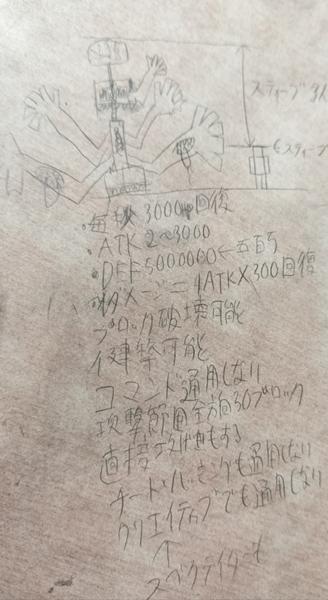 スティーブ3人
←スティーブ
・毎秒3000回復
・ATK2~3000
・DFF5000000←五百万
・1ダメージ=1ATK×300回復
ブロック破壊可能
建築可能
コマンド通用しない
攻撃範囲全方向30ブロック
直接攻げきもする
チート・ハッキングも通用しない
クリエイティブでも通用しない
↑
スペクテイターも